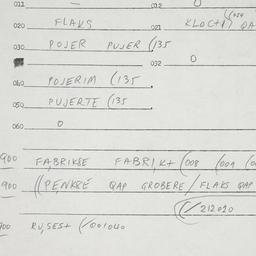 011 — 012 0
020 FLAKS 021 KLOC+
030 POJER PUJER (135
032 0
040 POJERIM (135
050 PUJERTE (135
060 0
900 FABRIKSE FABRIK+ (008 (009
900 PENKRÉ QAP GROBERE / FLAKS QAP
(/212020
900 RUSES+ (/001040